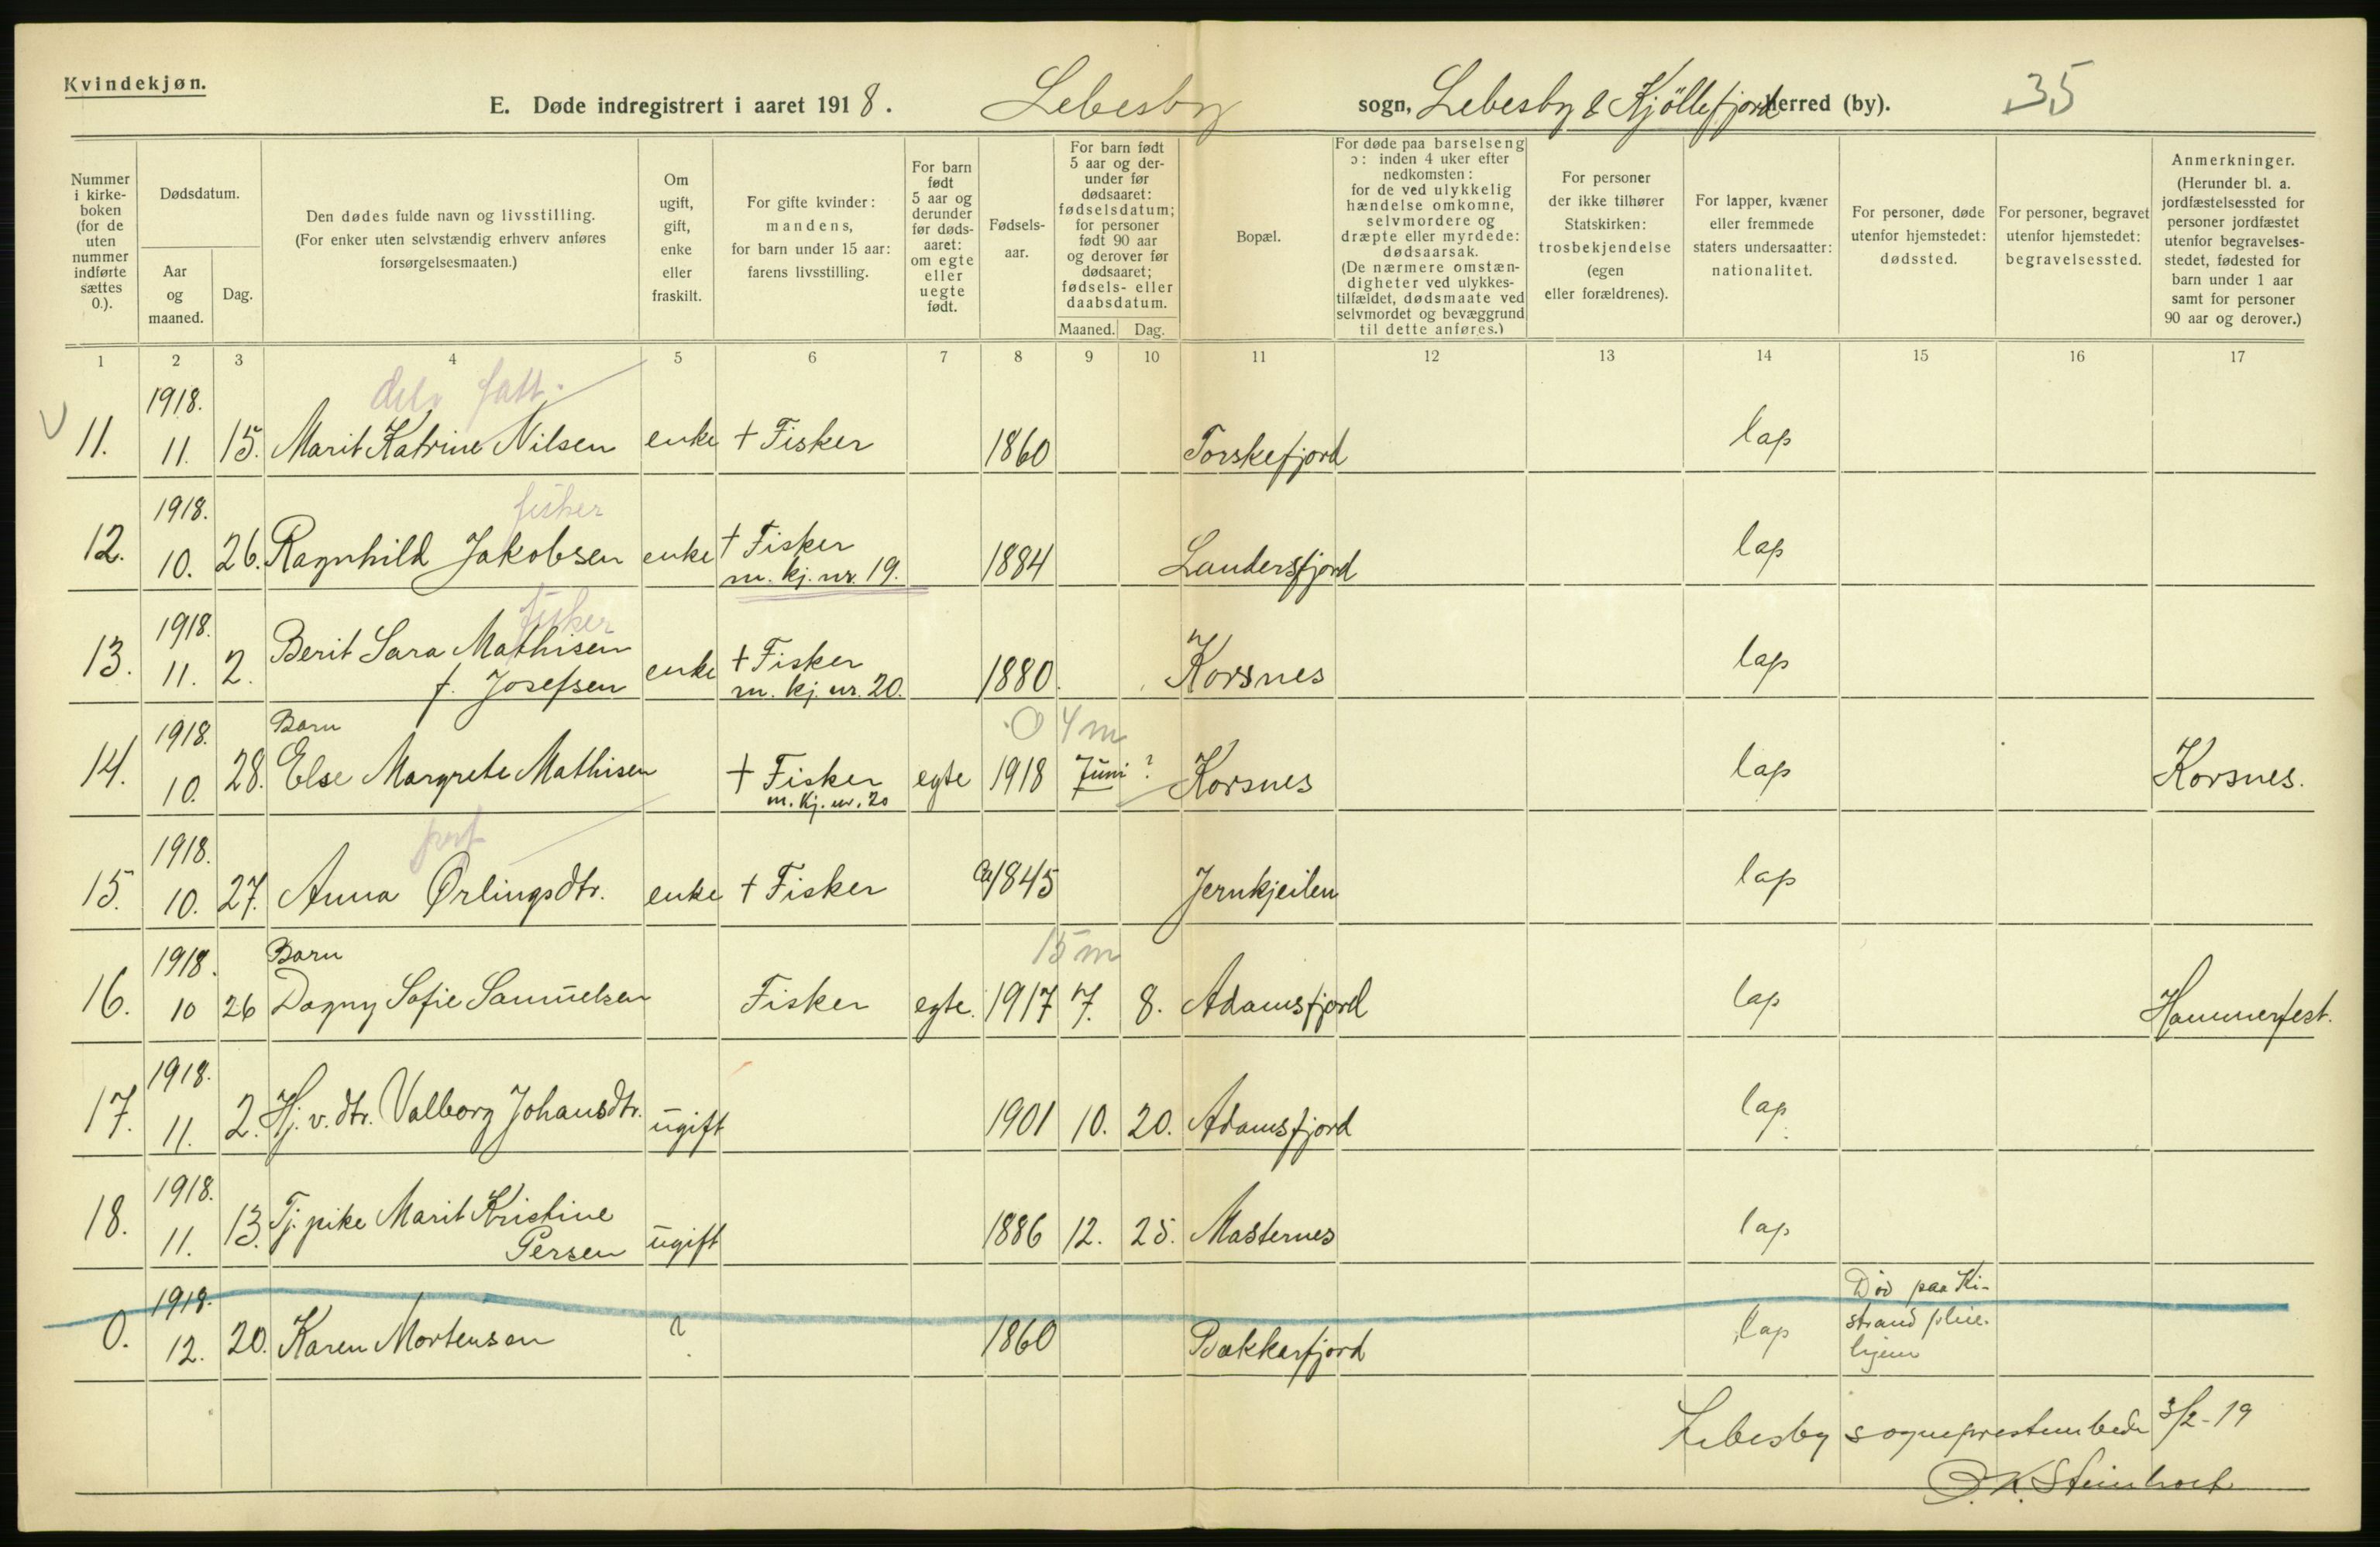 Kvindekjøn.
E. Døde indregistrert i aaret 1918. Lebesby sogn, Lebesby & Kjöllefjord herred (by). 35
Nummer i kirkeboken (for de uten nummer indførte sættes 0.).
Dødsdatum.
Aar og maaned.
Dag.
Den dødes fulde navn og livsstilling.
(For enker uten selvstændig erhverv anføres
forsørgelsesmaaten.)
Om ugift, gift, enke eller fraskilt.
For gifte kvinder: mandens, for barn under 15 aar: farens livsstilling.
For barn født 5 aar og derunder før dødsaaret: om egte eller uegte født.
Fødselsaar.
For barn født 5 aar og derunder før dødsaaret: fødselsdatum; for personer født 90 aar og derover før dødsaaret; fødsels- eller daabsdatum.
Maaned. Dag.
Bopæl.
For døde paa barselseng ɔ: inden 4 uker efter nedkomsten: for de ved ulykkelig hændelse omkomne, selvmordere og dræpte eller myrdede: dødsaarsak. (De nærmere omstændigheter ved ulykkestilfældet, dødsmaate ved selvmordet og bevæggrund til dette anføres.)
For personer der ikke tilhører Statskirken: trosbekjendelse (egen eller forældrenes).
For lapper, kvæner eller fremmede staters undersaatter: nationalitet.
For personer, døde utenfor hjemstedet: dødssted.
For personer, begravet utenfor hjemstedet: begravelsessted.
Anmerkninger. (Herunder bl. a. jordfæstelsessted for personer jordfæstet utenfor begravelsesstedet, fødested for barn under 1 aar samt for personer 90 aar og derover.)
1 2 3 4 5 6 7 8 9 10 11 12 13 14 15 16 17
1918.
11. 11. 15. Marit Katrine Nilsen enke + Fisker 1860 Torskefjord lap
1918. fisker
12. 10. 26. Ragnhild Jakobsen enke + Fisker 1884 Landersfjord lap
m. kj. nr. 19.
1918. fisker
13. 11. 2. Berit Sara Mathisen enke + Fisker 1880. Korsnes lap
f. Josefsen m. kj. nr. 20.
1918. Barn 0 4 m
14. 10. 28. Else Margrete Mathisen + Fisker egte 1918 Juni ? Korsnes lap Korsnes.
m. kj. nr. 20
1918.
15. 10. 27. Anna Ørlingsdtr. enke + Fisker Ca 1845 Jernkjeilen lap
1918. Barn 15 m
16. 10 26 Dagny Sofie Samuelsen Fisker egte. 1917 7. 8. Adamsfjord lap Hammerfest.
1918.
17. 11. 2. Hj. v. dtr. Valborg Johansdtr. ugift 1901 10. 20. Adamsfjord lap.
1918.
18. 11. 13. Tj. pike Marit Kristine ugift 1886 12. 25. Masternes lap
Persen
1918. Død paa Ki-
0. 12. 20. Karen Mortensen ? 1860 Bekkarfjord lap strand pleie-
hjem
Lebesby sogneprestembede 3/2-19